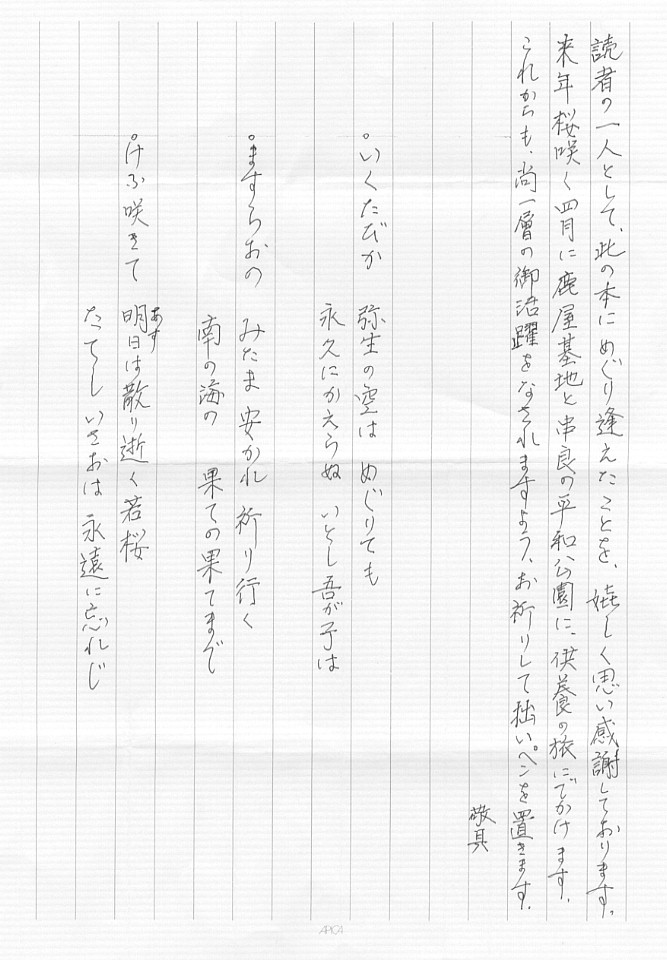 読者の一人として、此の本にめぐり逢えたことを、嬉しく思い感謝しております。
来年桜咲く四月に鹿屋基地と串良の平和公園に、供養の旅にでかけます。
これからも、尚一層の御活躍をなされますよう、お祈りして拙いペンを置きます。
敬具
。いくたびか 弥生の空は めぐりても
永久にかえらぬ いとし吾が子は
。ますらおの みたま安かれ 祈り行く
南の海の 果ての果てまで
。けふ咲きて 明日は散り逝く若桜
あす
たてしいさおは 永遠に忘れじ
APICA